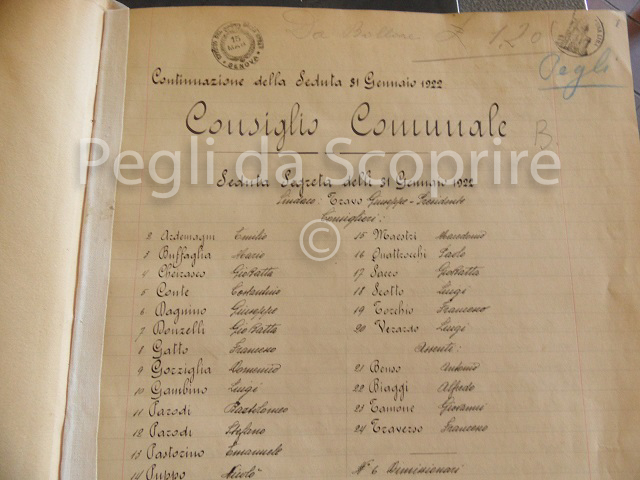 Da Bollare £ 1,20
Pegli
GENOVA
15
Continuazione della Seduta 31 Gennaio 1922
Consiglio Comunale
B.
Pegli da Scoprire
©
Seduta Segreta delli 31 Gennaio 1922
Sindaco: Travo Giuseppe - Presidente
Consiglieri:
2 Ardemagni Emilio
3 Buffaglia Mario
4 Cheirasco GioBatta
5 Conte Costantino
6 Dagnino Giuseppe
7 Donzelli GioBatta
8 Gatto Francesco
9 Gorziglia Domenico
10 Gambino Luigi
11 Parodi Bartolomeo
12 Parodi Stefano
13 Pastorino Emanuele
14 Puppo Nicolò
15 Maestri Macedonio
16 Quattrocchi Paolo
17 Sacco GioBatta
18 Scotto Luigi
19 Torchio Francesco
20 Verardo Luigi
Assenti:
21 Benso Antonio
22 Biaggi Alfredo
23 Tamone Giovanni
24 Traverso Francesco
N° 6 Dimissionari